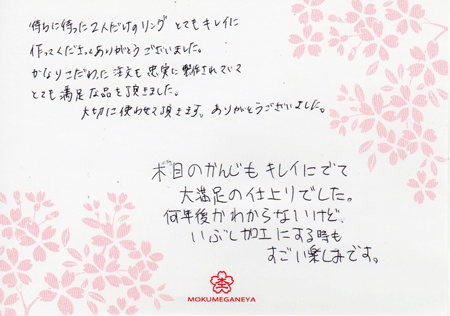 待ちに待った2人だけのリング とてもキレイに
作ってくださってありがとうございました。
かなりこだわった注文も忠実に製作されていて
とても満足な品を頂きました。
大切に使わせて頂きます。ありがとうございました。
木目のかんじもキレイにでて
大満足の仕上りでした。
何年後かわからないけど、
いぶし加工にする時も
すごい楽しみです。
MOKUMEGANEYA